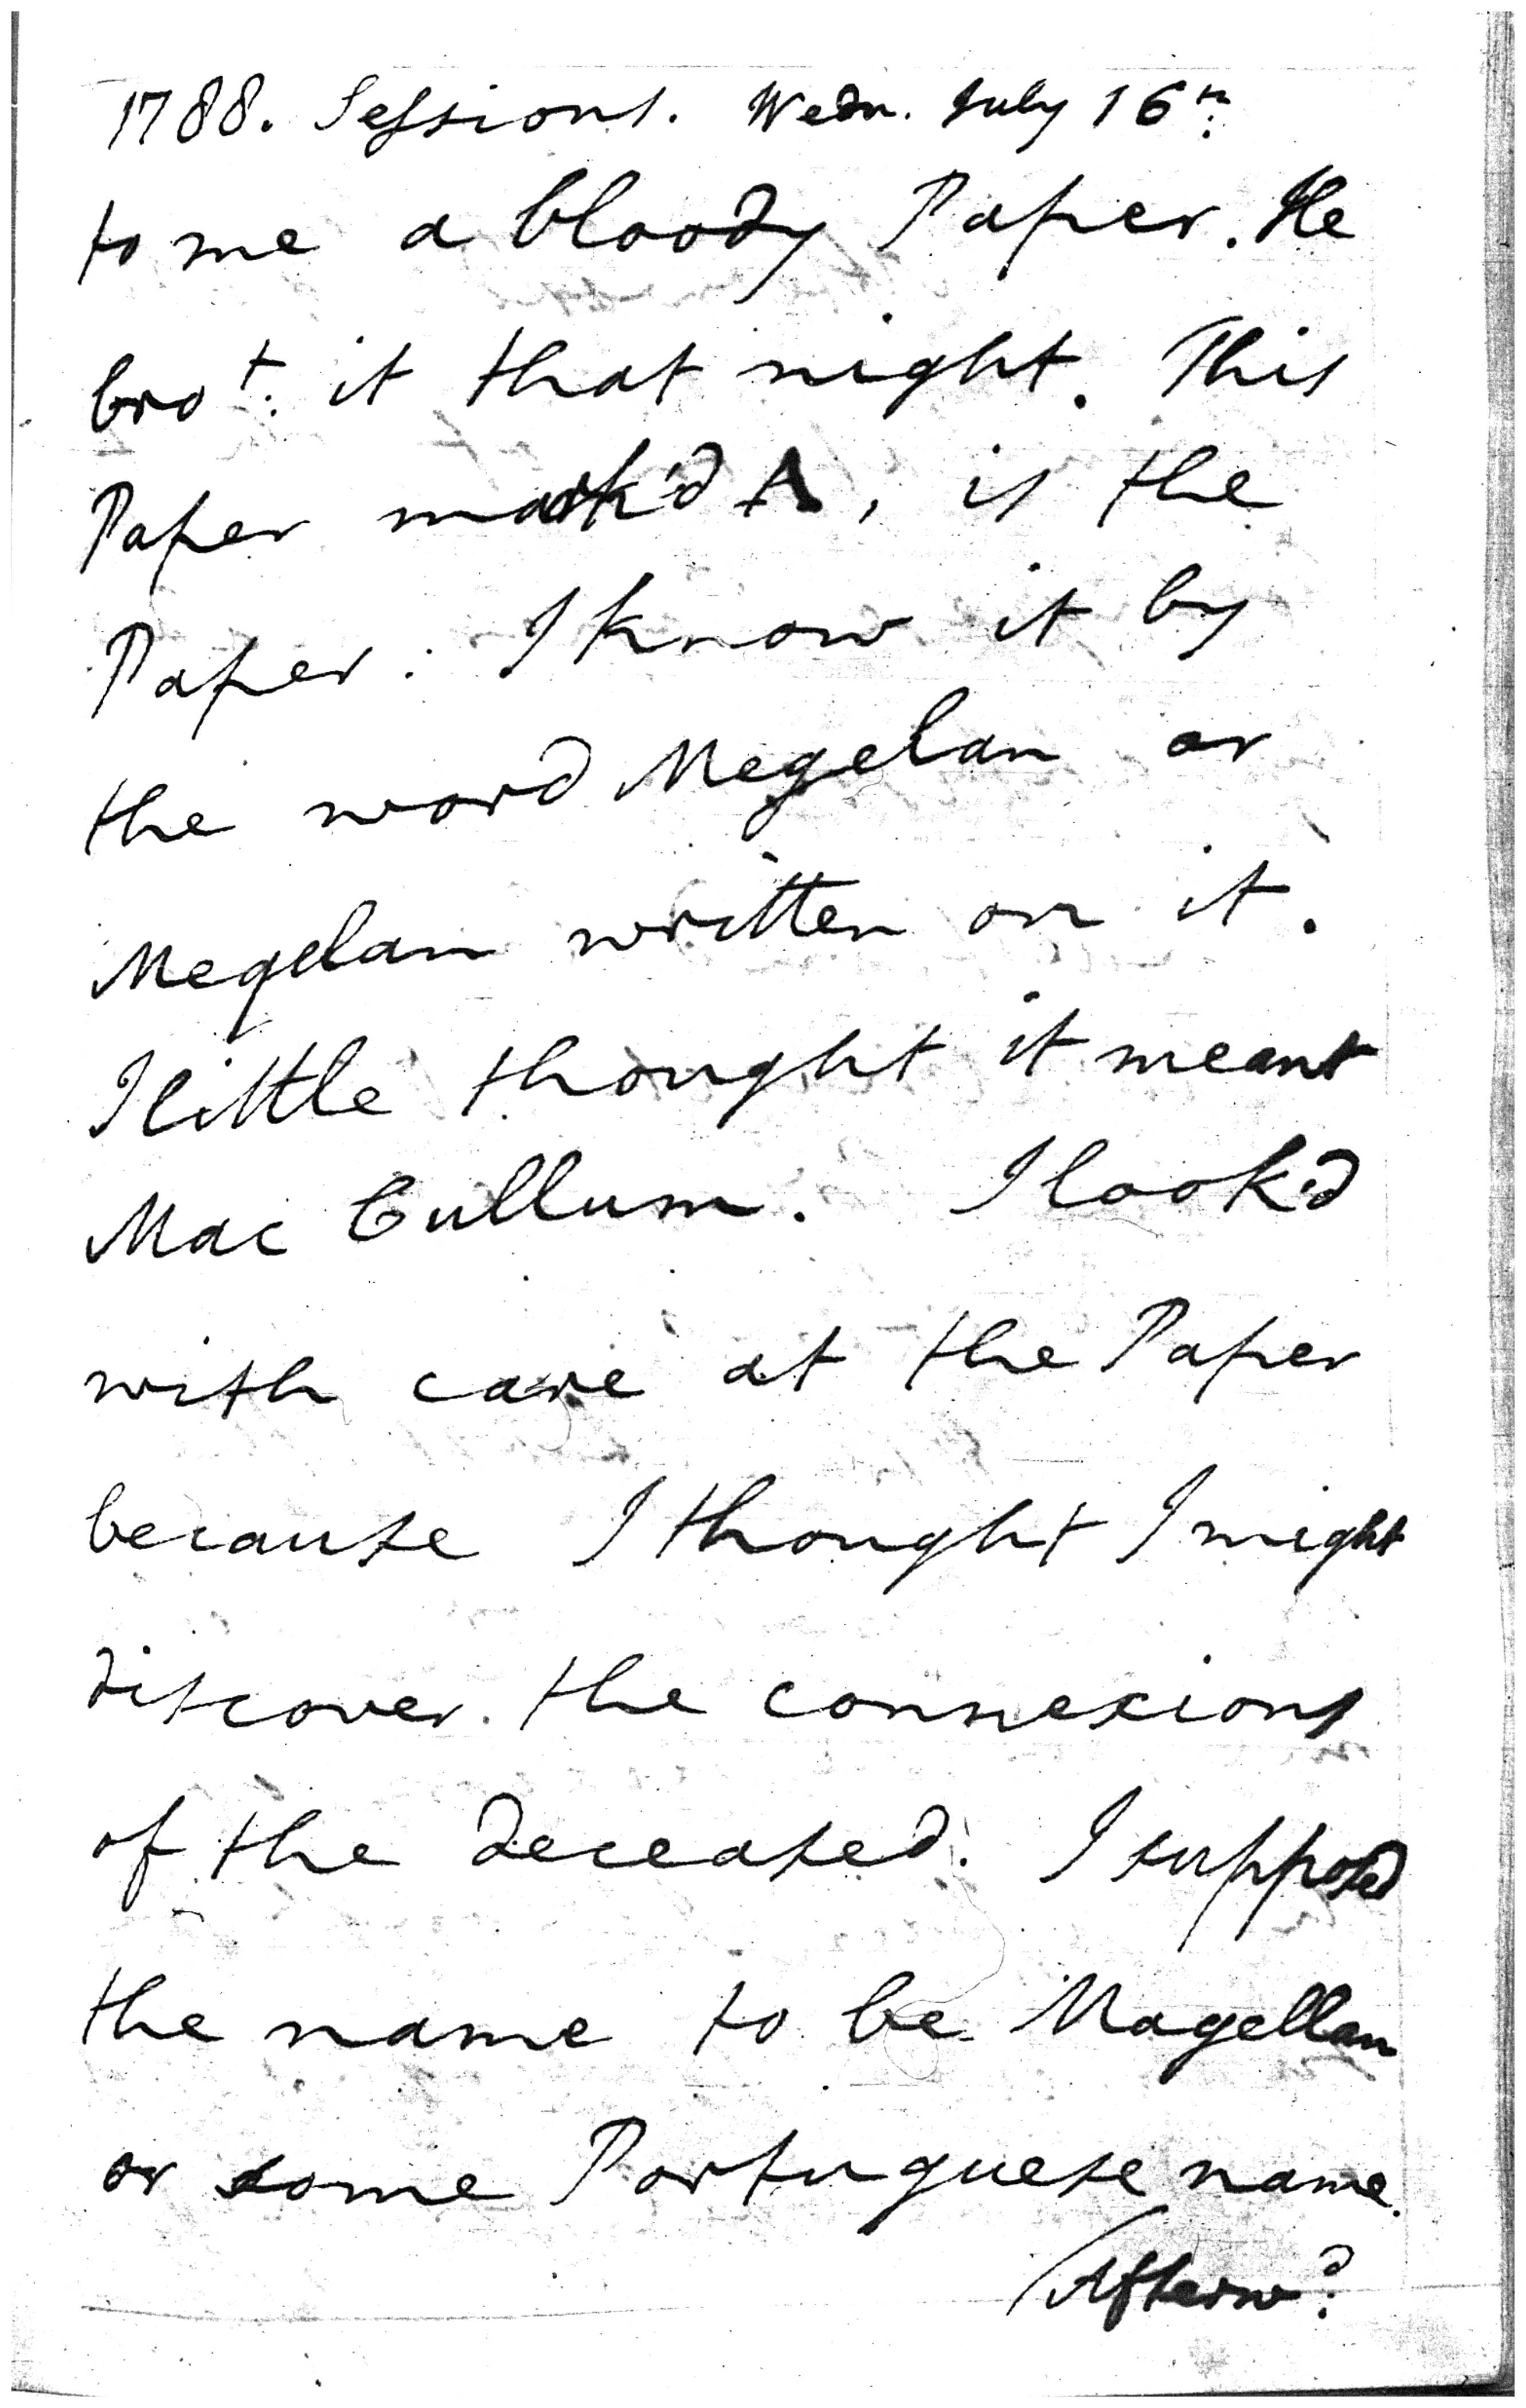 1788. Sessions. Wedn. July 16th.
to me a bloody Paper. He
brot. it that night. This
Paper mark'd A, is the
Paper. I know it by
the word Megelan or
Megelan written on it.
I little thought it meant
Mac Cullum. I look'd
with care at the Paper
because I thought I might
discover the connexions
of the deceased. I supposed
the name to be Magellan
or some Portuguese name.
Afterwd.